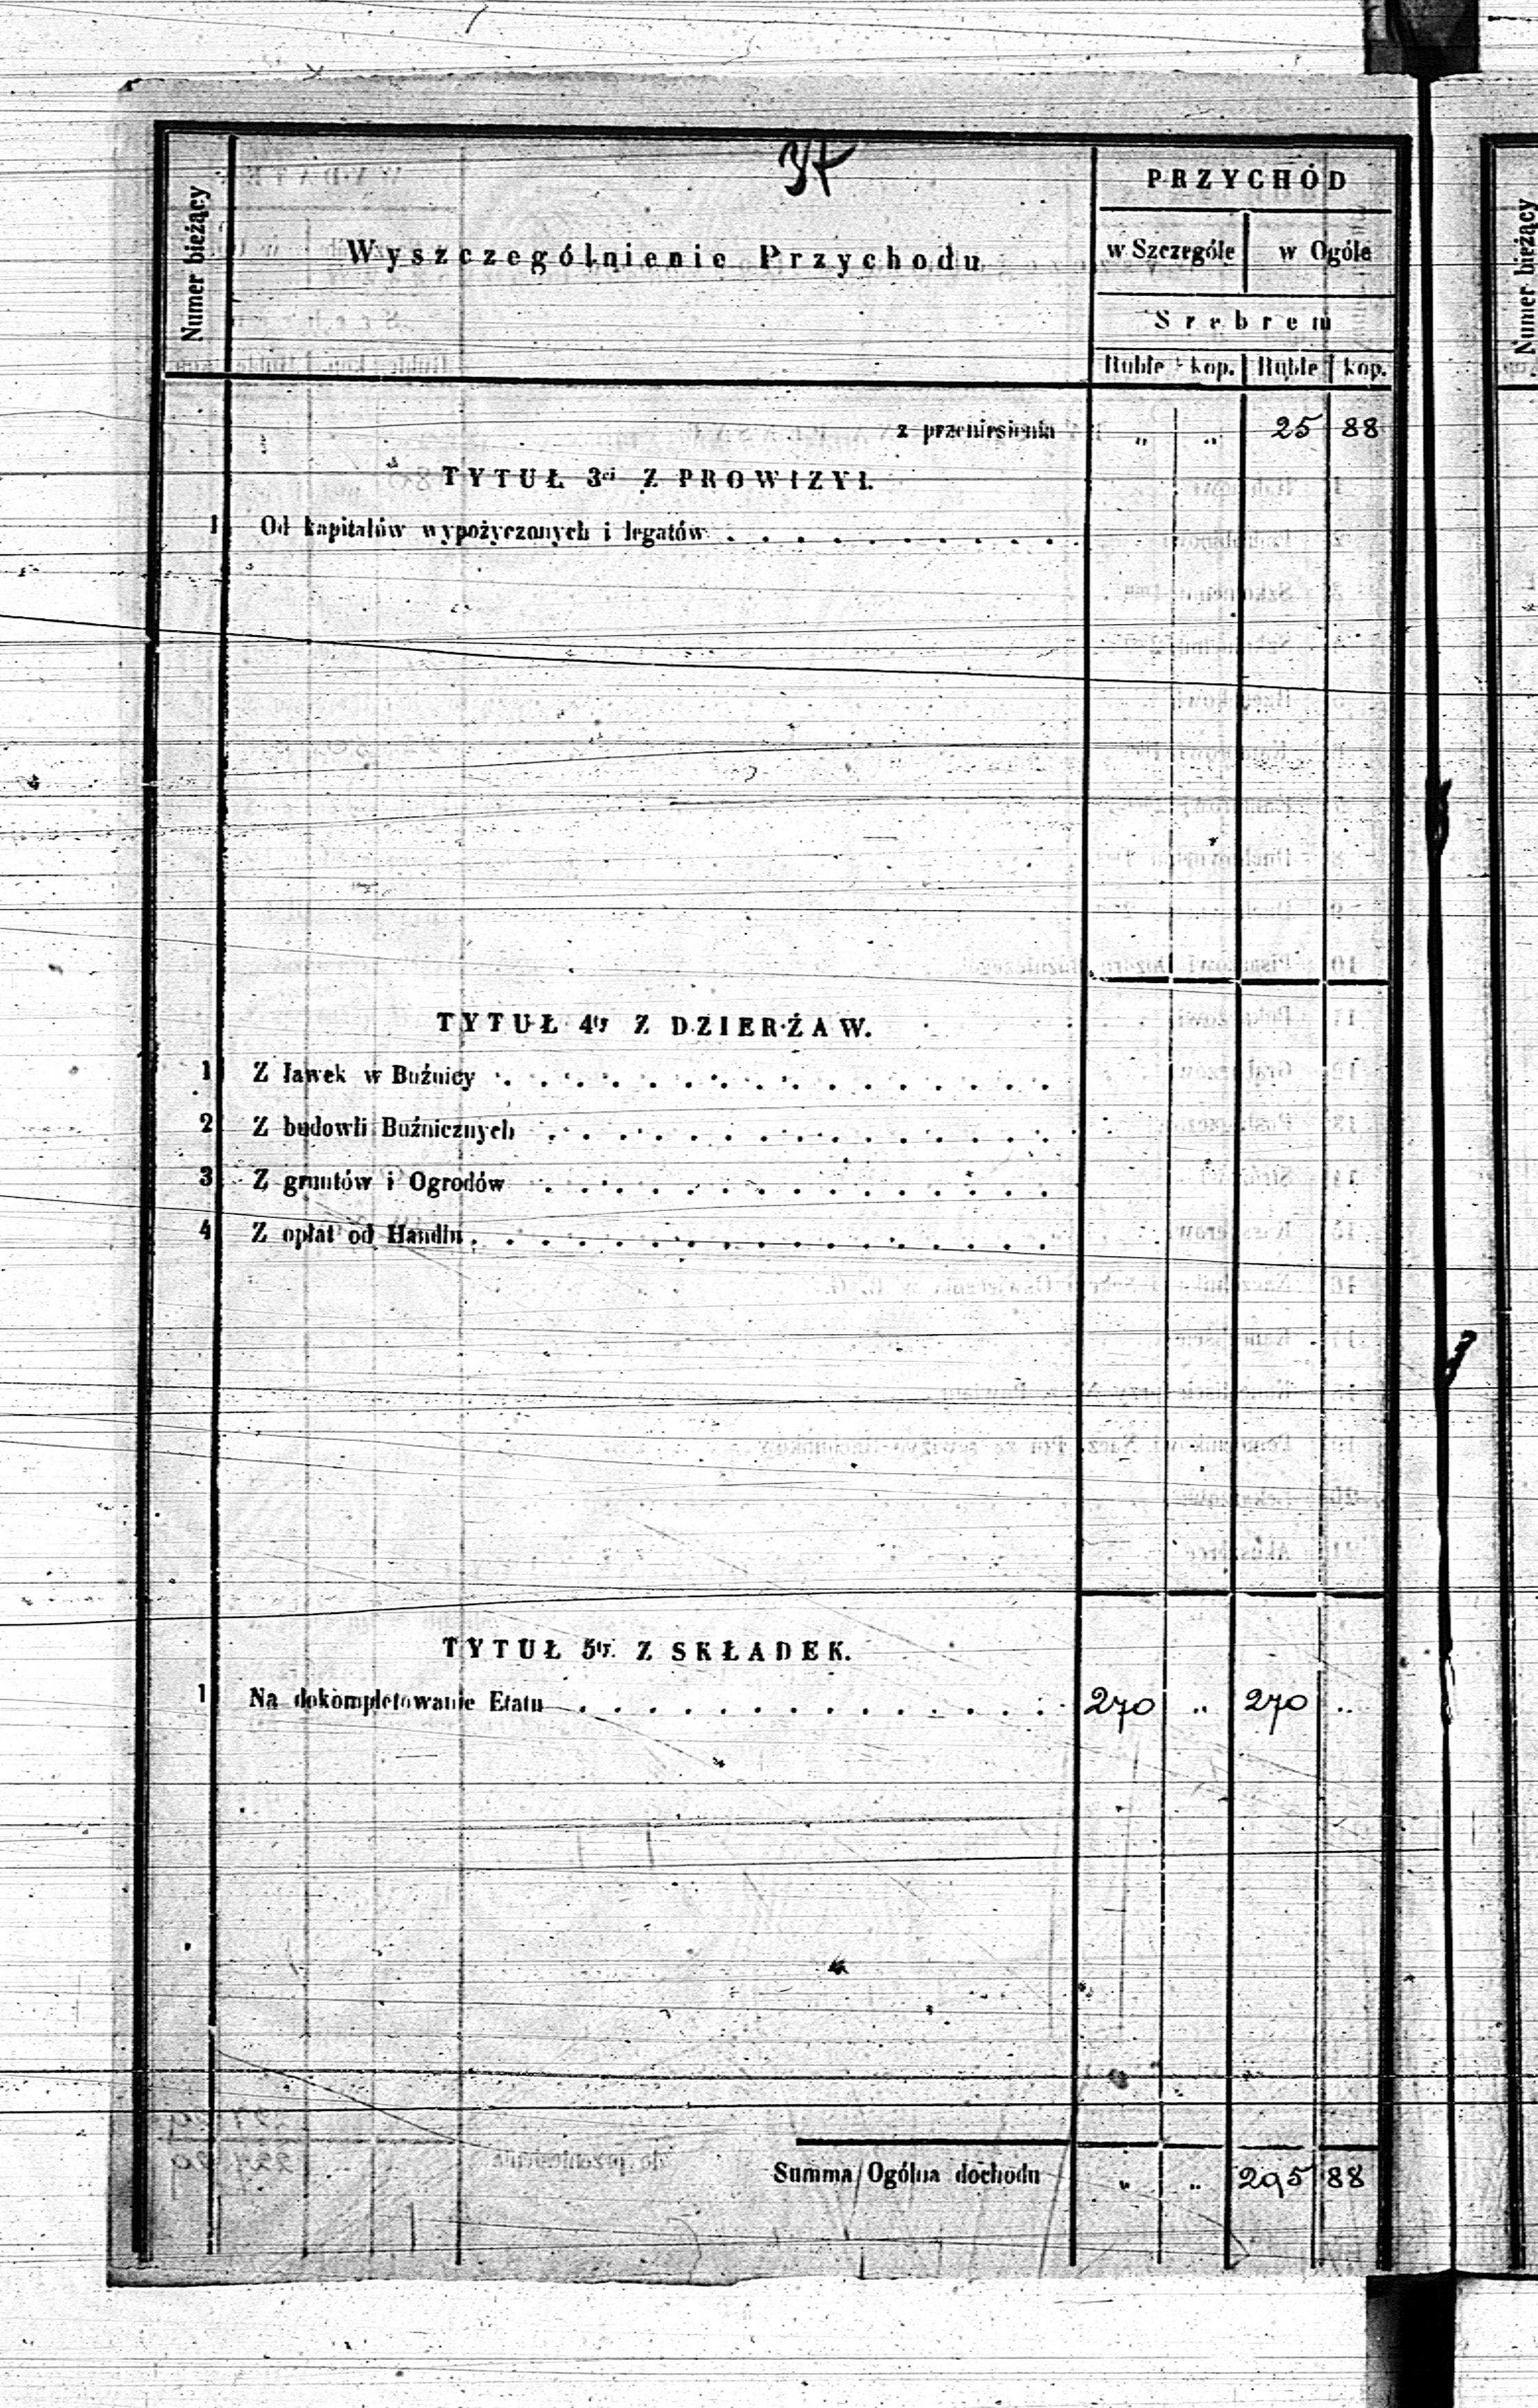 37
Numer bieżący
Wyszczególnienie Przychodu
PRZYCHÓD
w Szczególe w Ogóle
Srebrem
Ruble kop. Ruble kop.
z przeniesienia „ „ 25 88
TYTUŁ 3ci Z PROWIZYI.
1 Od kapitałów wypożyczonych i legatów . . . . . . . . . .
TYTUŁ 4ty Z DZIERŻAW.
1 Z ławek w Bużnicy . . . . . . . . . . . . . . . .
2 Z budowli Bużnicznych . . . . . . . . . . . . . . .
3 Z gruntów i Ogrodów . . . . . . . . . . . . . . .
4 Z opłat od Handlu . . . . . . . . . . . . . . . . .
TYTUŁ 5ty Z SKŁADEK.
1 Na dokompletowanie Etatu . . . . . . . . . . . . . . 270 „ 270 „
Summa Ogólna dochodu „ „ 295 88
Numer bieżący